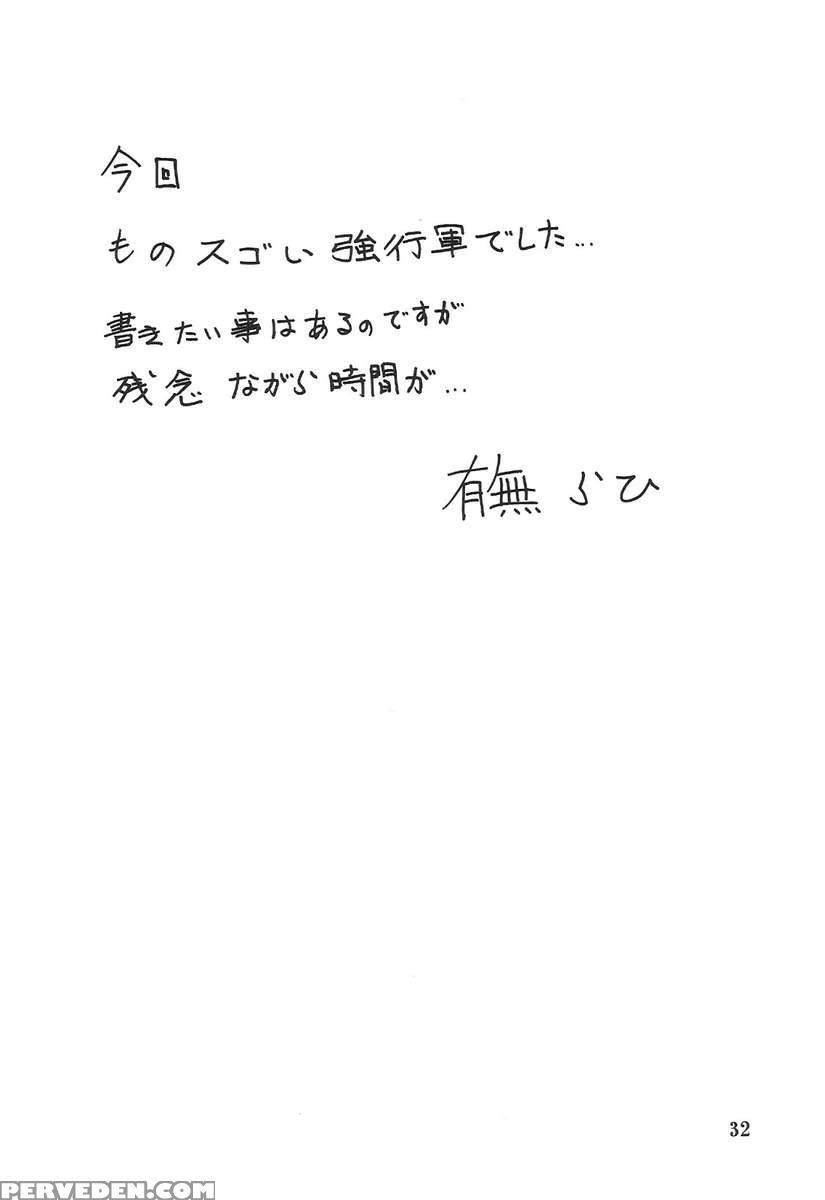 今回
ものスゴい強行軍でした…
書きたい事はあるのですが
残念ながら時間が…
有無らひ
32
PERVEDEN.COM